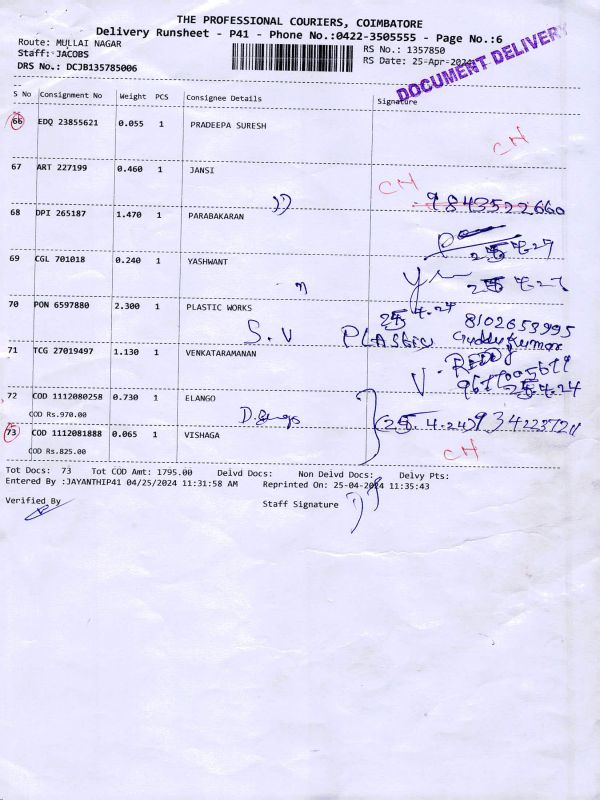 THE PROFESSIONAL COURIERS, COIMBATORE
Delivery Runsheet - P41 - Phone No.:0422-3505555 - Page No.:6
Route: MULLAI NAGAR RS No.: 1357850
Staff: JACOBS RS Date: 25-Apr-2024
DRS No.: DCJB135785006
DOCUMENT DELIVERY
S No Consignment No Weight PCS Consignee Details Signature
66 EDQ 23855621 0.055 1 PRADEEPA SURESH
CH
67 ART 227199 0.460 1 JANSI
CH
9843522660
68 DPI 265187 1.470 1 PARABAKARAN
69 CGL 701018 0.240 1 YASHWANT
70 PON 6597880 2.300 1 PLASTIC WORKS
25.4.24 8102653995
S.V PLASTIC Guddu Kumar
71 TCG 27019497 1.130 1 VENKATARAMANAN
V. REDDY
25.4.24
72 COD 1112080258 0.730 1 ELANGO
COD Rs.970.00
(25.4.24)
73 COD 1112081888 0.065 1 VISHAGA
CH
COD Rs.825.00
Tot Docs: 73 Tot COD Amt: 1795.00 Delvd Docs: Non Delvd Docs: Delvy Pts:
Entered By :JAYANTHIP41 04/25/2024 11:31:58 AM Reprinted On: 25-04-2024 11:35:43
Verified By Staff Signature